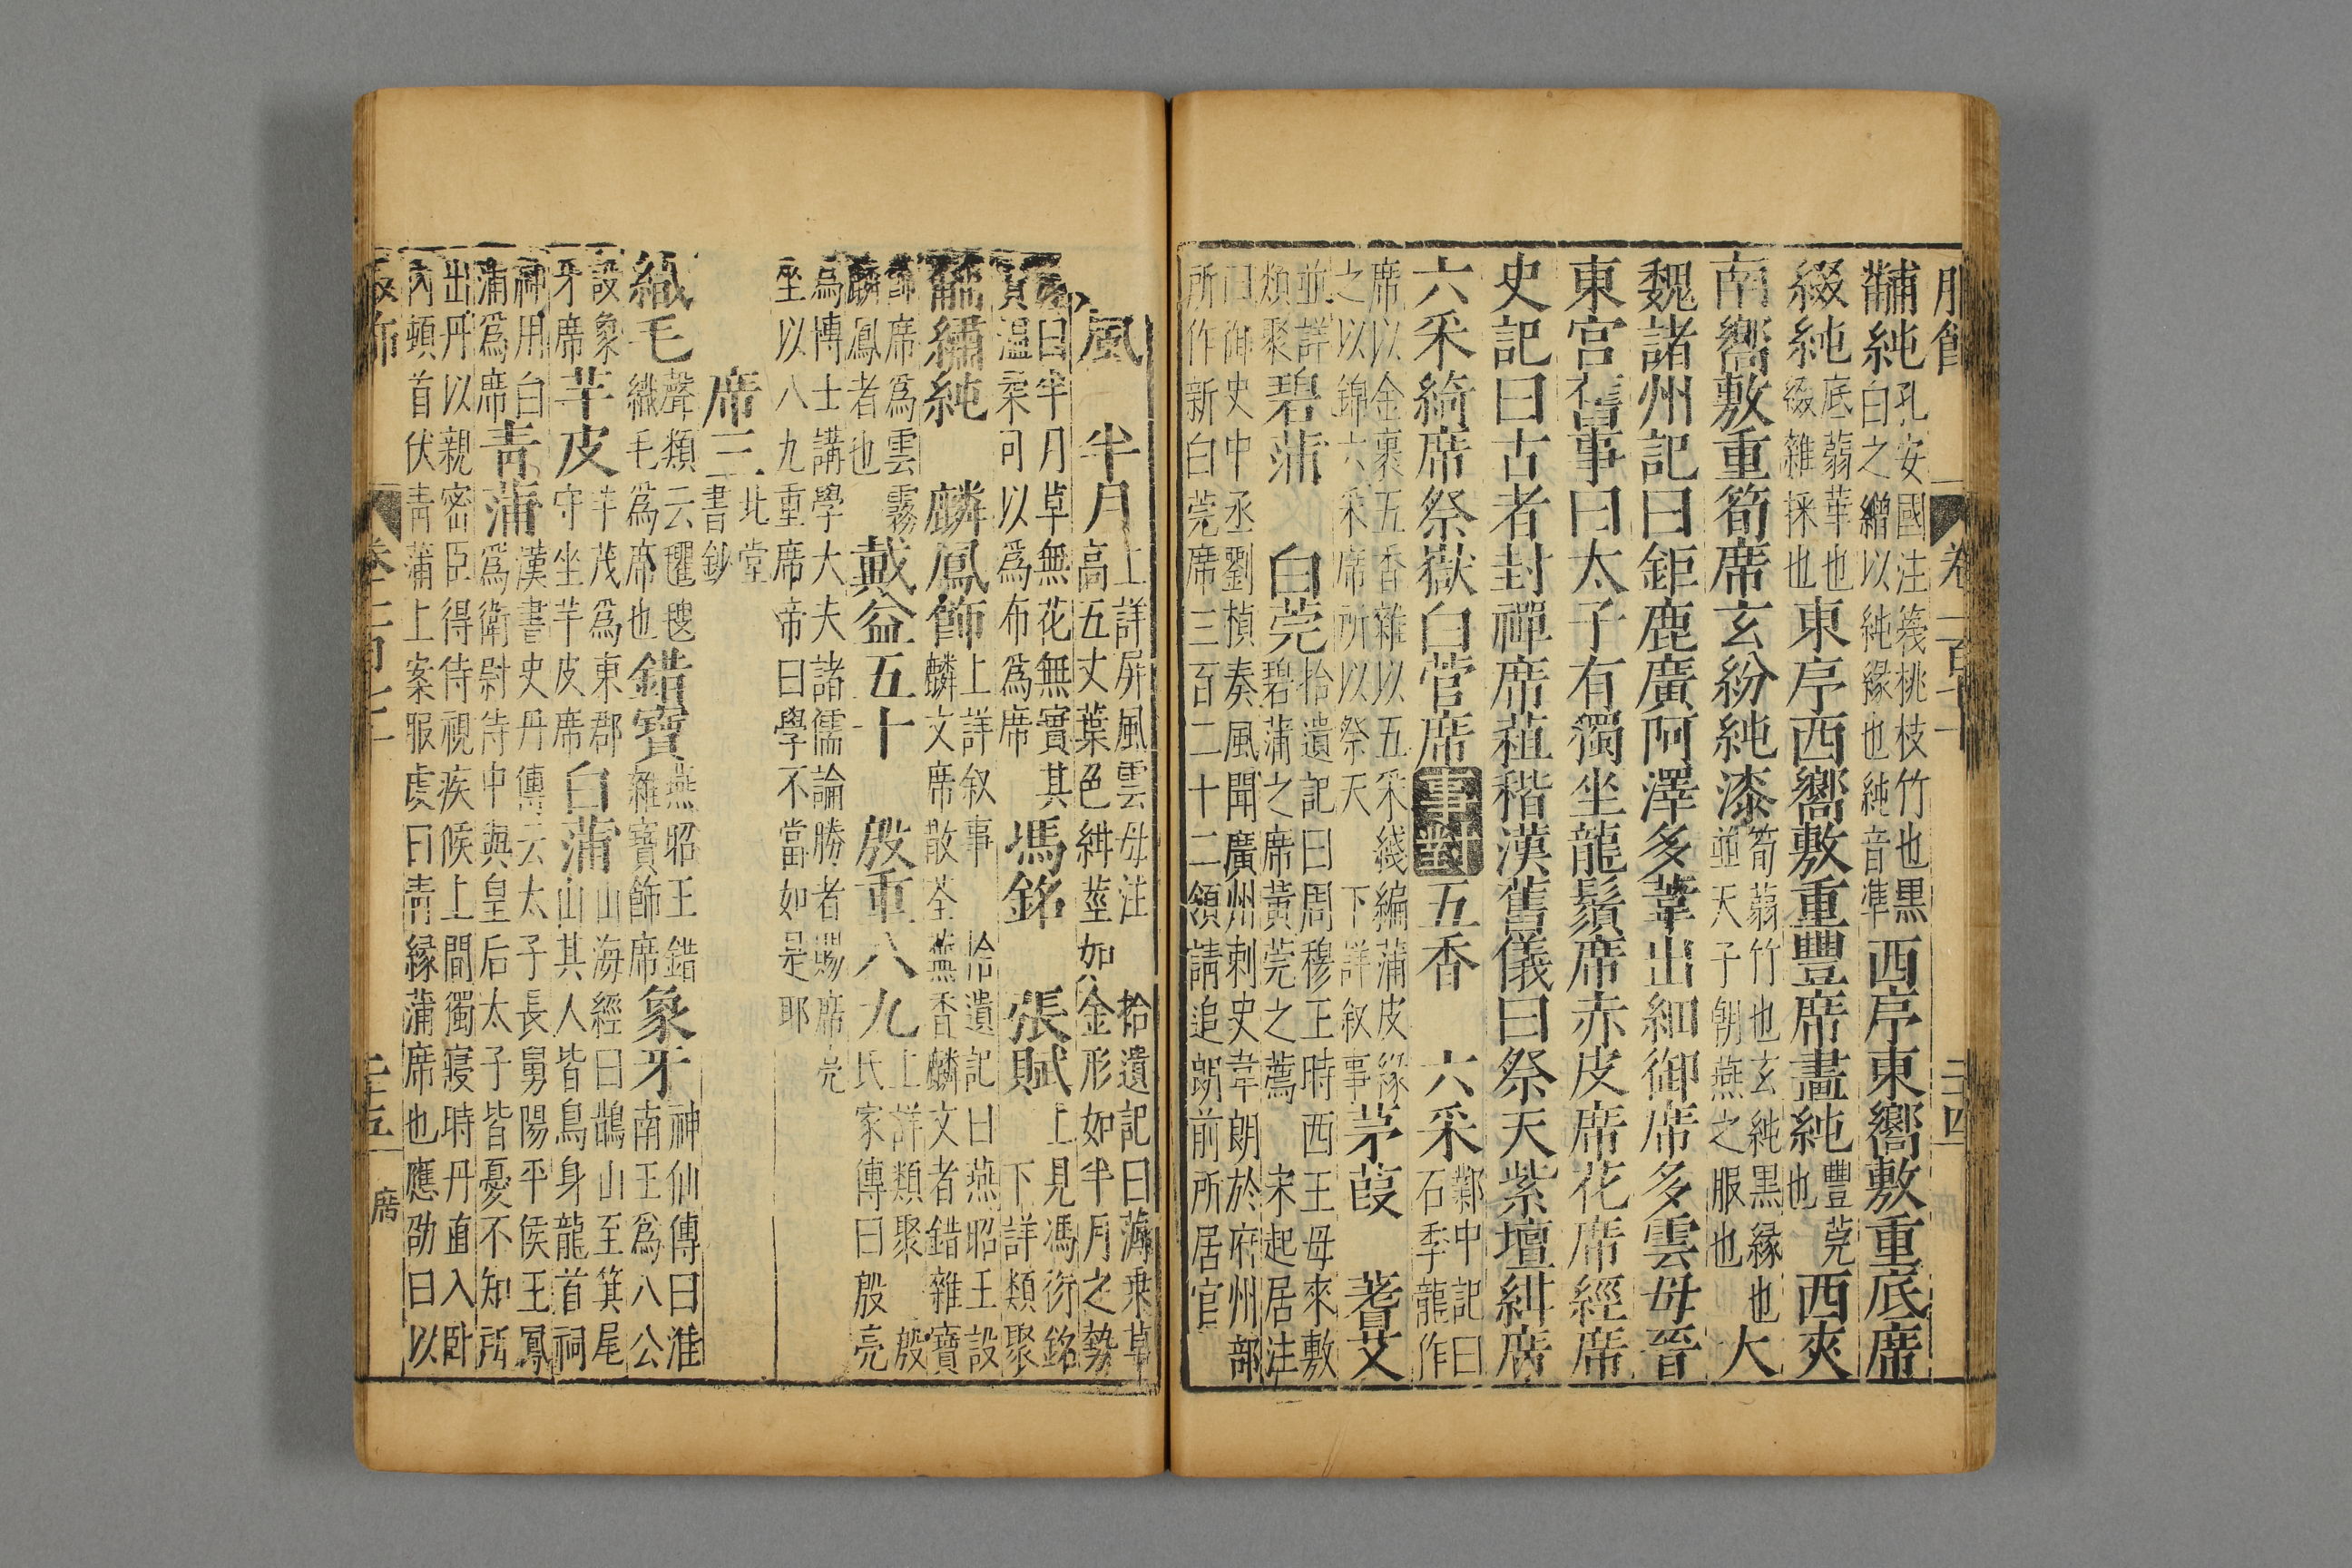 服飾 卷二百十 三四
黼純 孔安國注篾桃枝竹也黒白之繒以純緣也純音準 西序東嚮敷重底席
綴純 底蒻華也綴雜採也 東序西嚮敷重豐席畵純 豐莞也 西夾
南嚮敷重筍席玄紛純漆 筍蒻竹也玄純黒緣也並天子朝燕之服也 大
魏諸州記曰鉅鹿廣阿澤多葦出細御席多雲母晉
東宮舊事曰太子有獨坐龍鬚席赤皮席花席經席
史記曰古者封禪席葅稭漢舊儀曰祭天紫壇紺席
六采綺席祭嶽白菅席 事對 五香 六采 鄴中記曰石季龍作
席以金裹五香雜以五采綫編蒲皮緣之以錦六采席所以祭天 下詳叙事 茅葭 蓍艾
並詳類聚 碧蒲 白莞 拾遺記曰周穆王時西王母來敷碧蒲之席黃莞之薦 宋起居注
曰御史中丞劉楨奏風聞廣州刺史韋朗於府州部所作新白莞席三百二十二領請追朗前所居官
風 半月 上詳屏風雲母注 拾遺記曰薄乗草高五丈葉色紺莖如金形如半月之勢
曰半月草無花無實其質温柔可以爲布爲席 馮銘 張賦 上見馮衍銘下詳類聚
黼繡純 麟鳳飾 上詳叙事 拾遺記曰燕昭王設麟文席散荃蕪香麟文者錯雜寶
飾席爲雲霧麟鳳者也 戴益五十 殷重八九 上詳類聚 殷氏家傳曰殷亮
爲博士講學大夫諸儒論勝者賜席亮坐以八九重席帝曰學不當如是耶
席三 北堂書鈔
織毛 聲類云氍毹織毛爲席也 錯寶 燕昭王錯雜寶飾席 象牙 神仙傳曰淮南王爲八公
設象牙席 芋皮 羊茂爲東郡守坐芋皮席 白蒲 山海經曰鵲山至箕尾山其人皆鳥身龍首祠
神用白蒲爲席 青蒲 漢書史丹傳云太子長舅陽平侯王鳳爲衛尉侍中與皇后太子皆憂不知所
出丹以親密臣得侍視疾候上間獨寝時丹直入卧内頓首伏青蒲上案服虔曰青緣蒲席也應劭曰以
服飾 卷二百十 三五 席